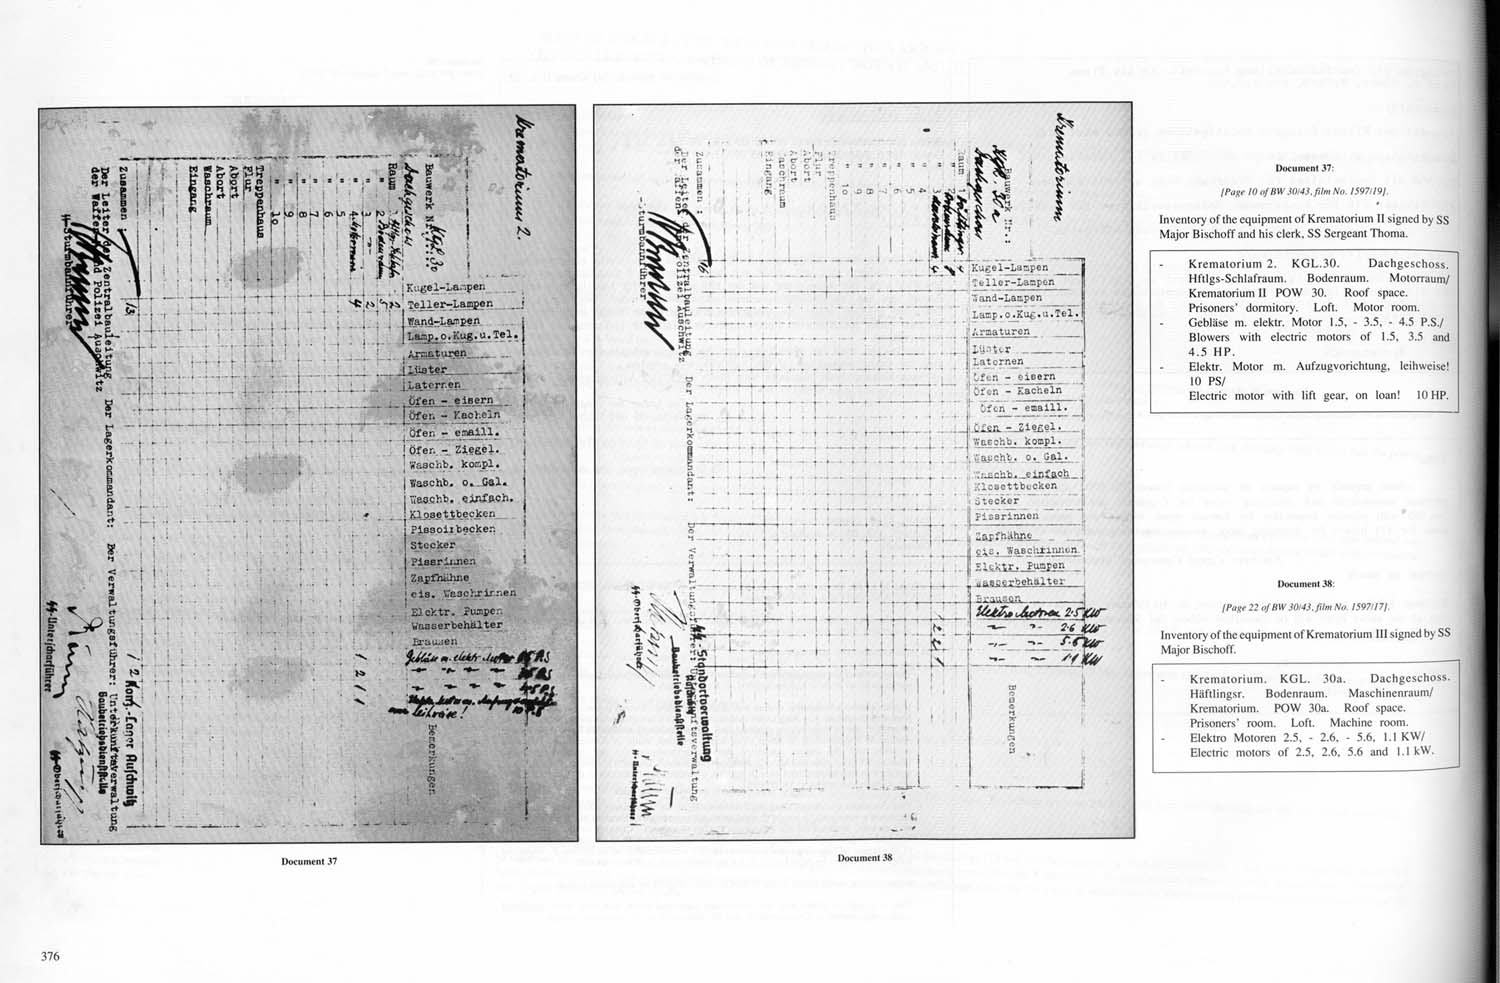 Krematorium 2.
Bauwerk Nr.: KGL. 30
Dachgeschoss
Raum
2 Bodenraum
3
4
5
6
7
8
9
10
Treppenhaus
Flur
Abort
Abort
Waschraum
Eingang
Zusammen 13
Kugel-Lampen
Teller-Lampen 2 5 2 4
Wand-Lampen
Lamp.o.Kug.u.Tel.
Armaturen
Lüster
Laternen
Öfen - eisern
Öfen - Kacheln
Öfen - emaill.
Öfen - Ziegel.
Waschb. kompl.
Waschb. o. Gal.
Waschb. einfach.
Klosettbecken
Pissoirbecken
Stecker
Pissrinnen
Zapfhähne
eis. Waschrinnen
Elektr. Pumpen
Wasserbehälter
Brausen
Gebläse m. elektr. Motor
leihweise!
Bemerkungen
Der Leiter der Zentralbauleitung
der Waffen-SS und Polizei Auschwitz
SS-Sturmbannführer
Der Lagerkommandant:
Der Verwaltungsführer: Unterkunftsverwaltung
Baubetriebsdienststelle
SS-Unterscharführer
Document 37
Krematorium
Bauwerk Nr.:
KGL. 30a
Dachgeschoss
Raum 1
3
4
5
6
7
8
9
10
Treppenhaus
Flur
Abort
Abort
Waschraum
Eingang
Zusammen : 16
Kugel-Lampen
Teller-Lampen
Wand-Lampen
Lamp.o.Kug.u.Tel.
Armaturen
Lüster
Laternen
Öfen - eisern
Öfen - Kacheln
Öfen - emaill.
Öfen - Ziegel.
Waschb. kompl.
Waschb. o. Gal.
Waschb. einfach
Klosettbecken
Stecker
Pissrinnen
Zapfhähne
eis. Waschrinnen
Elektr. Pumpen
Wasserbehälter
Brausen
Elektro Motoren 2·5 KW
2·6 KW
5·6 KW
1·1 KW
Bemerkungen
Der Leiter der Zentralbauleitung
SS-Sturmbannführer
Der Lagerkommandant:
Der Verwaltungsführer: Unterkunftsverwaltung
SS-Standortverwaltung
Baubetriebsdienststelle
SS-Oberscharführer
Document 38
Document 37:
[Page 10 of BW 30/43, film No. 1597/19].
Inventory of the equipment of Krematorium II signed by SS
Major Bischoff and his clerk, SS Sergeant Thoma.
- Krematorium 2. KGL.30. Dachgeschoss.
Hftlgs-Schlafraum. Bodenraum. Motorraum/
Krematorium II POW 30. Roof space.
Prisoners' dormitory. Loft. Motor room.
- Gebläse m. elektr. Motor 1.5, - 3.5, - 4.5 P.S./
Blowers with electric motors of 1.5, 3.5 and
4.5 HP.
- Elektr. Motor m. Aufzugvorichtung, leihweise!
10 PS/
Electric motor with lift gear, on loan! 10 HP.
Document 38:
[Page 22 of BW 30/43, film No. 1597/17].
Inventory of the equipment of Krematorium III signed by SS
Major Bischoff.
- Krematorium. KGL. 30a. Dachgeschoss.
Häftlingsr. Bodenraum. Maschinenraum/
Krematorium. POW 30a. Roof space.
Prisoners' room. Loft. Machine room.
- Elektro Motoren 2.5, - 2.6, - 5.6, 1.1 KW/
Electric motors of 2.5, 2.6, 5.6 and 1.1 kW.
376